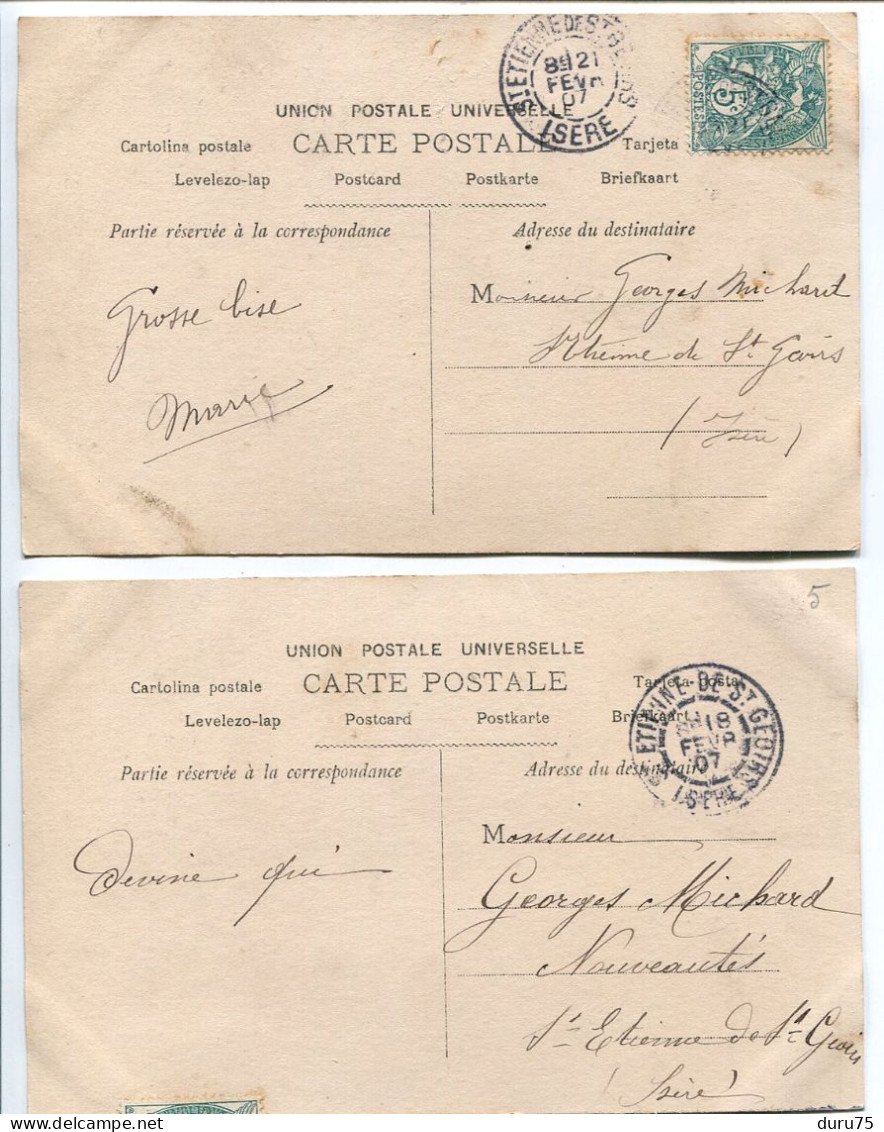 ST ETIENNE DE ST GEOIRS
8E 21
FEVR
07
ISERE
5
POSTES
UNION POSTALE UNIVERSELLE
Cartolina postale CARTE POSTALE Tarjeta
Levelezo-lap Postcard Postkarte Briefkaart
Partie réservée à la correspondance
Adresse du destinataire
Grosse bise
Marie
Monsieur Georges Michard
St Etienne de St Geoirs
(Isère)
5
UNION POSTALE UNIVERSELLE
Cartolina postale CARTE POSTALE Tarjeta Postal
Levelezo-lap Postcard Postkarte Briefkaart
ST ETIENNE DE ST GEOIRS
18
FEVR
07
ISERE
Partie réservée à la correspondance
Adresse du destinataire
Devine qui
Monsieur
Georges Michard
Nouveautés
St Etienne de St Geoirs
(Isère)
duru75